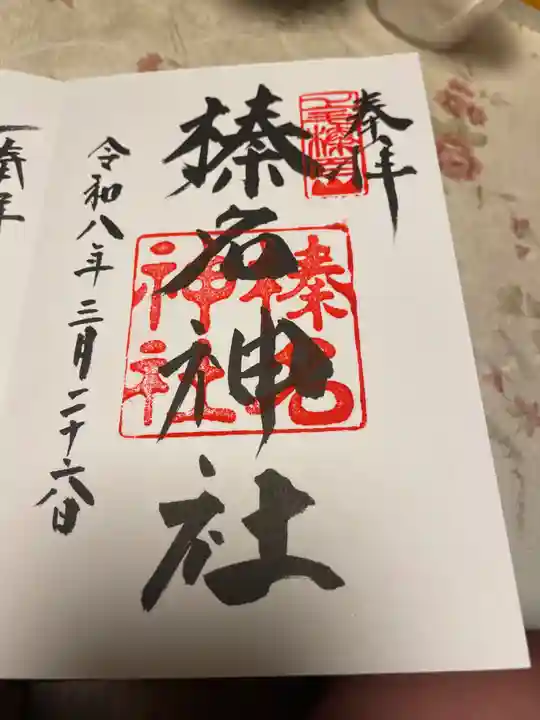 奉拝
榛名神社
榛名神社
令和八年三月二十六日